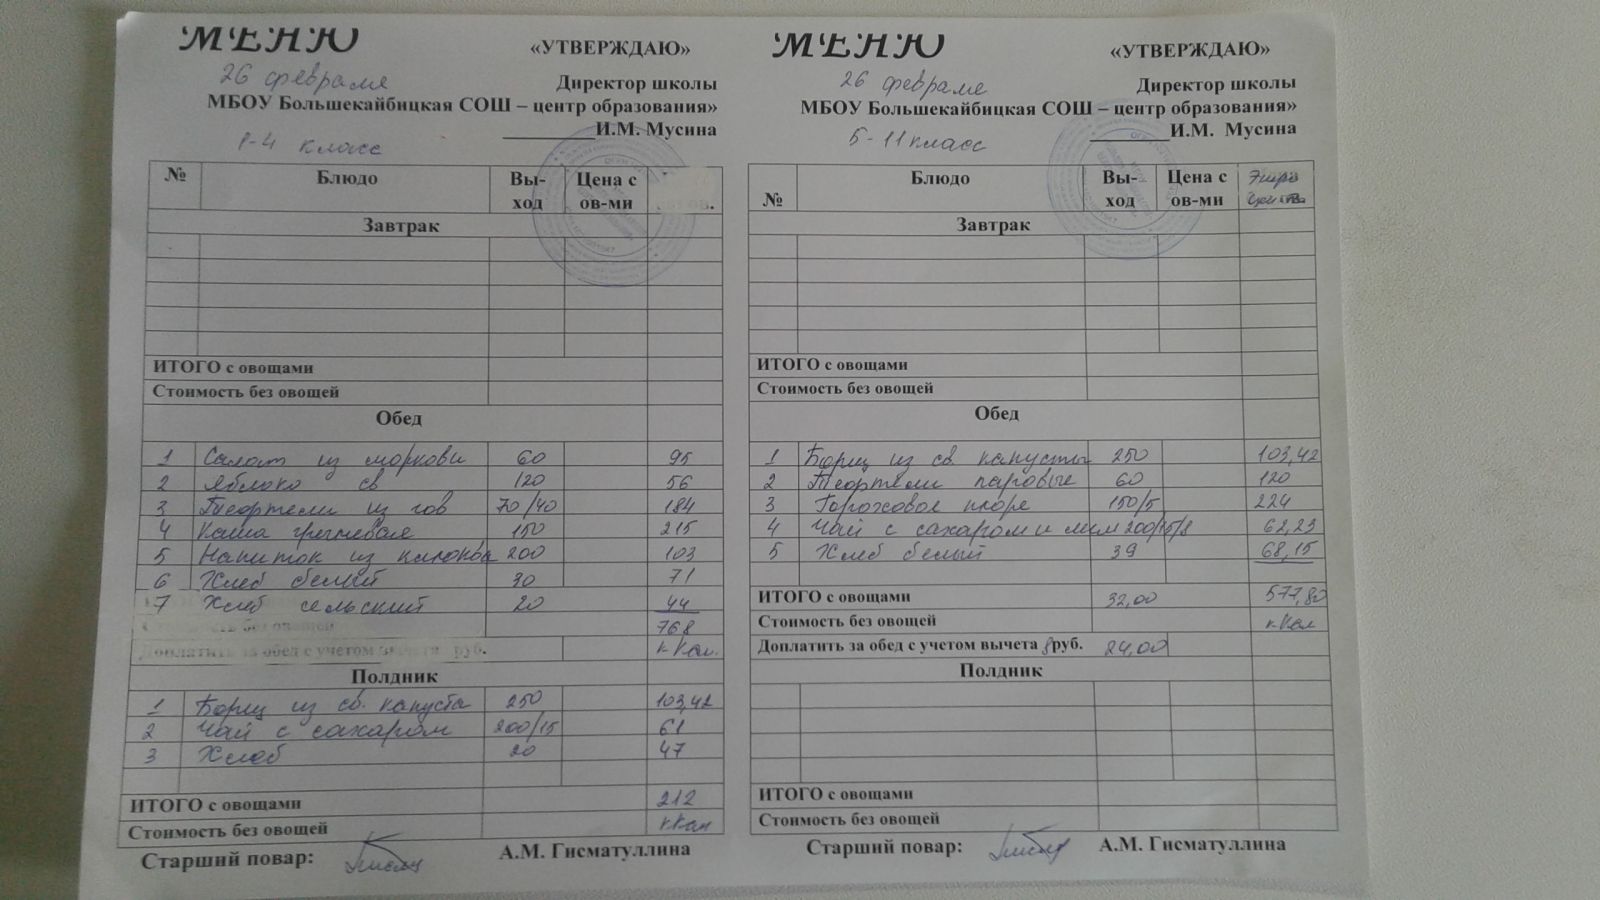 МЕНЮ
«УТВЕРЖДАЮ»
26 февраля
Директор школы
МБОУ Большекайбицкая СОШ – центр образования»
И.М. Мусина
1-4 класс
№ Блюдо Вы-ход Цена с ов-ми
Завтрак
ИТОГО с овощами
Стоимость без овощей
Обед
1 Салат из моркови 60 95
2 Яблоко св 120 56
3 Тефтели из гов 70/40 184
4 Каша гречневая 150 215
5 Напиток из 200 103
6 Хлеб белый 30 71
7 Хлеб сельский 20 44
без овощей 768
Доплатить за обед с учетом вычета руб. кКал.
Полдник
1 Борщ из св. капуста 250 103,42
2 Чай с сахаром 200/15 61
3 Хлеб 20 47
ИТОГО с овощами 212
Стоимость без овощей кКал
Старший повар: А.М. Гисматуллина
МЕНЮ
«УТВЕРЖДАЮ»
26 февраля
Директор школы
МБОУ Большекайбицкая СОШ – центр образования»
И.М. Мусина
5-11 класс
№ Блюдо Вы-ход Цена с ов-ми
Завтрак
ИТОГО с овощами
Стоимость без овощей
Обед
1 Борщ из св. капусты 250 103,42
2 Тефтели паровые 60 120
3 Гороховое пюре 150/5 224
4 Чай с сахаром и лим 200/15/8 62,23
5 Хлеб белый 39 68,15
ИТОГО с овощами 32,00 577,80
Стоимость без овощей кКал
Доплатить за обед с учетом вычета 8руб. 24,00
Полдник
ИТОГО с овощами
Стоимость без овощей
Старший повар: А.М. Гисматуллина